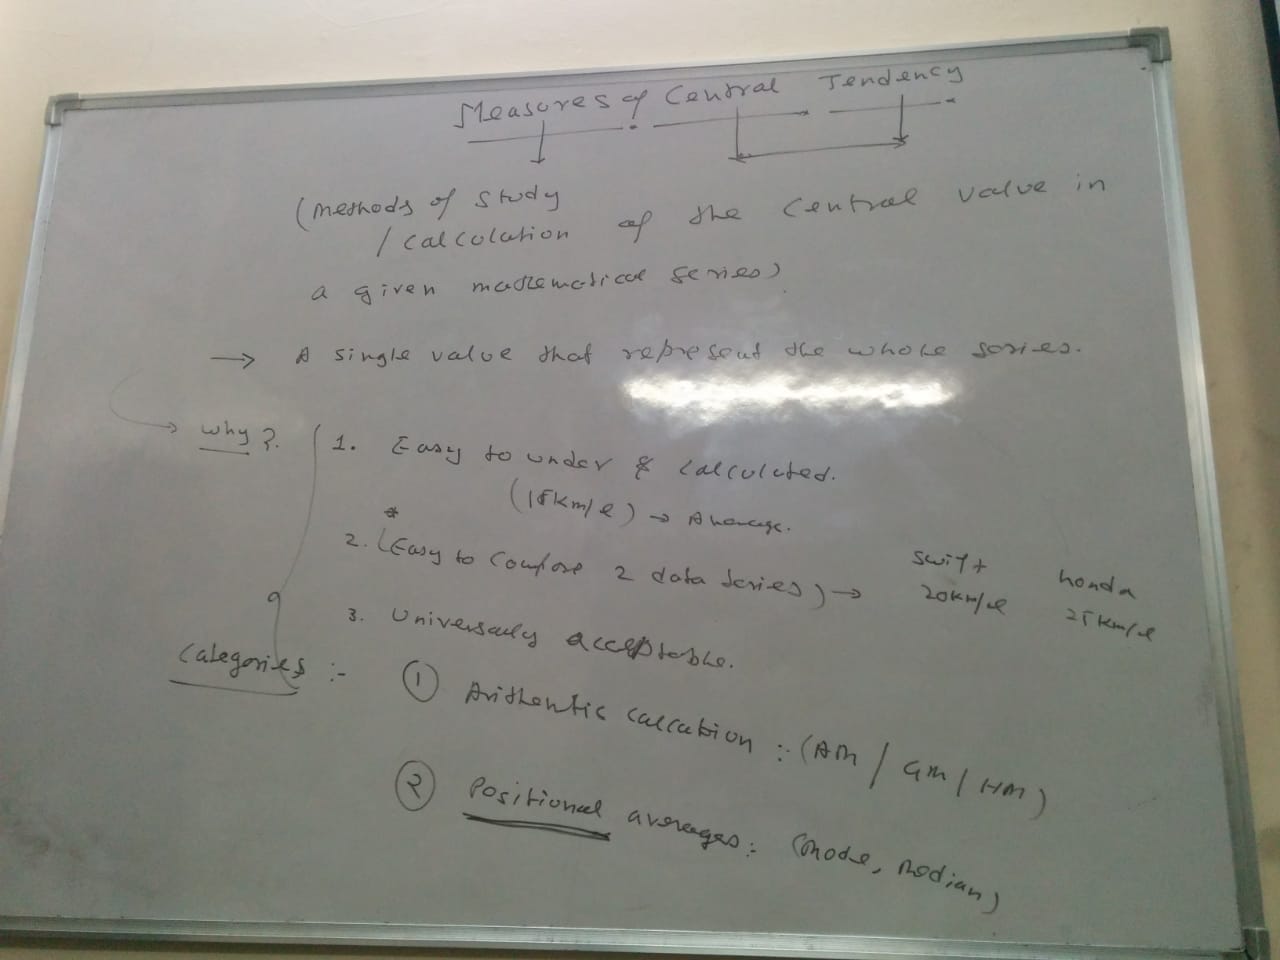 Measures of Central Tendency
(methods of study
/ calculation of the central value in
a given mathematical series)
→ A single value that represent the whole series.
→ why?
1. Easy to under & calculated.
(18km/l) → Average.
*
2. (Easy to compare 2 data series) → swift honda
20km/l 25km/l
3. Universally acceptable.
Categories :-
① Arithemtic calcation :- (AM / GM / HM)
② Positional averages :- (mode, median)